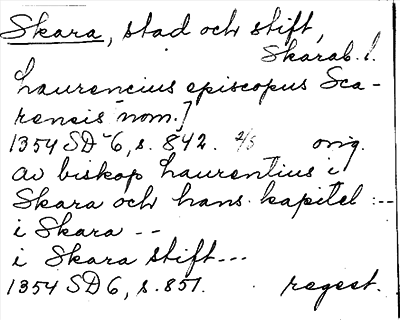 Skara, stad och stift,
Skarab. l.
Laurencius episcopus Sca-
rensis nom.]
1354 SD 6, s. 842. 2/5 orig.
av biskop Laurentius i
Skara och hans kapitel :--
i Skara --
i Skara stift---
1354 SD 6, s. 851. regest.